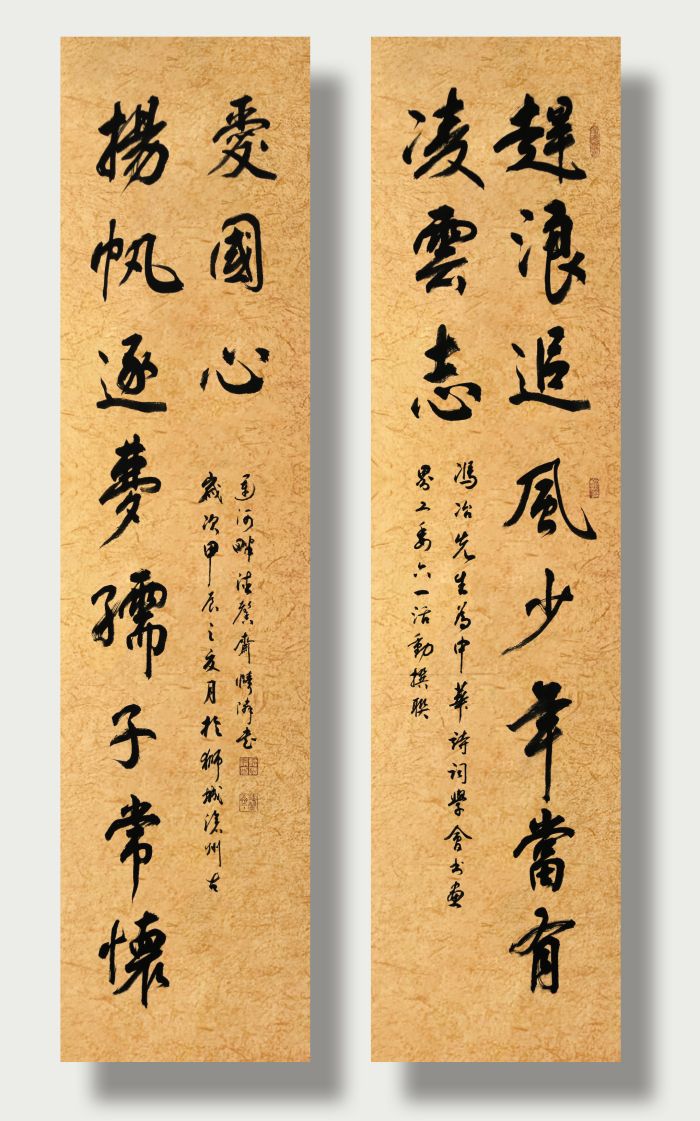 趕浪追風少年當有
凌雲志
馮冶先生為中華詩詞學會書畫
界工委六一活動撰聯
揚帆逐夢孺子常懷
愛國心
歲次甲辰之夏月於獅城滄州古
運河畔德馨齋書